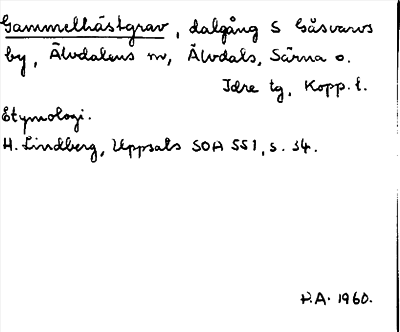 Gammelhästgrav, dalgång S Gåsvarvs
by, Älvdalens sn, Älvdals, Särna o.
Idre tg, Kopp. l.
Etymologi.
H. Lindberg, Uppsats SOA 551, s. 34.
P.A. 1960.